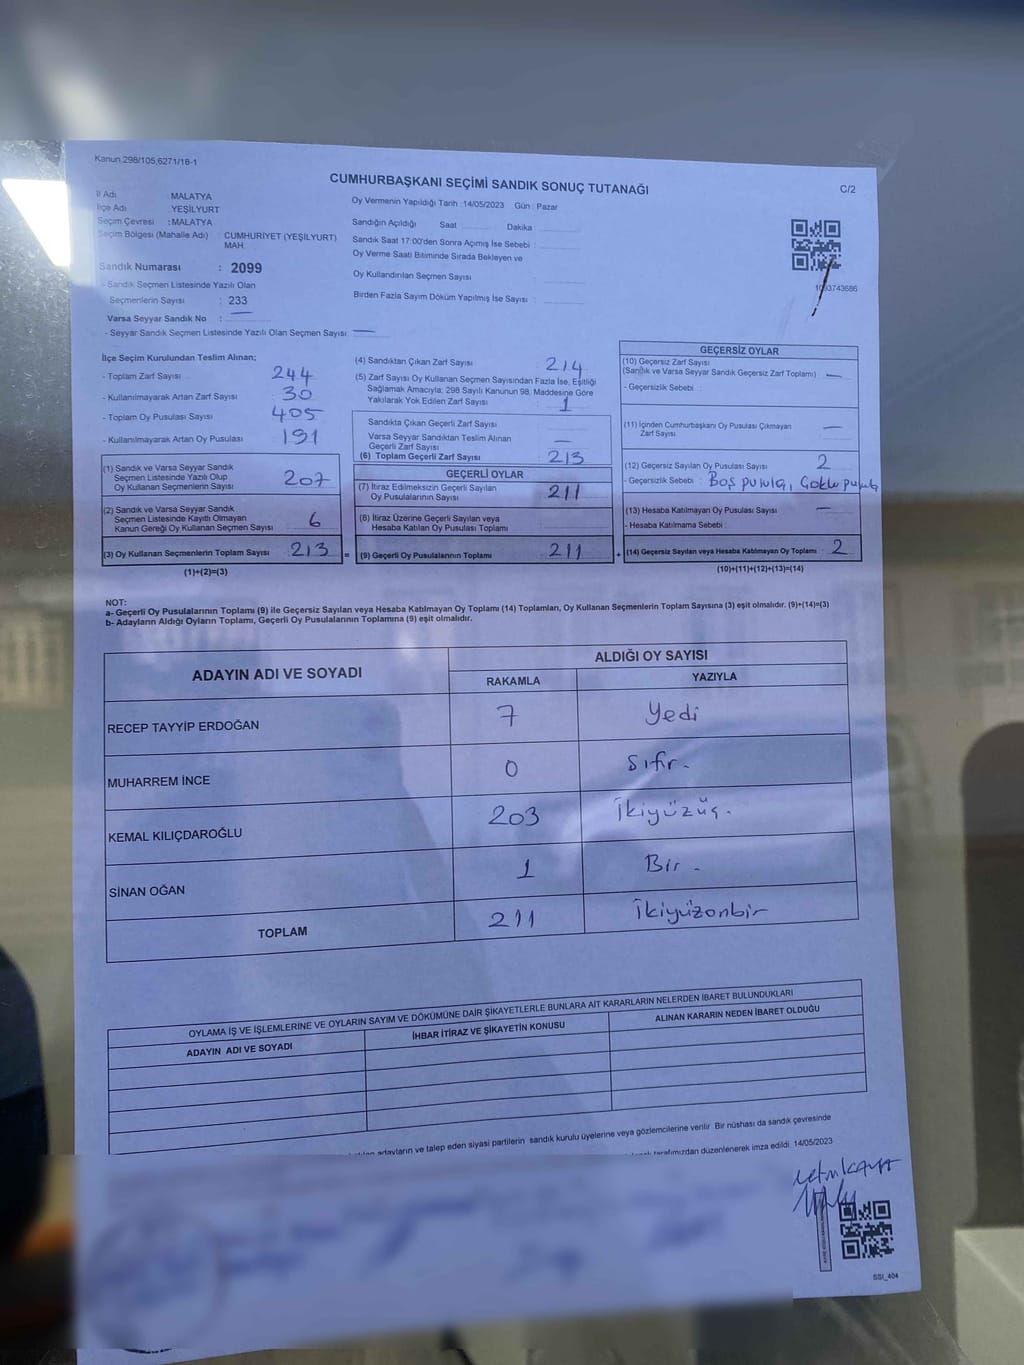 Kanun.298/105,6271/18-1
CUMHURBAŞKANI SEÇİMİ SANDIK SONUÇ TUTANAĞI
C/2
İl Adı : MALATYA
İlçe Adı : YEŞİLYURT
Seçim Çevresi : MALATYA
Seçim Bölgesi (Mahalle Adı) : CUMHURİYET (YEŞİLYURT) MAH.
Sandık Numarası : 2099
- Sandık Seçmen Listesinde Yazılı Olan
Seçmenlerin Sayısı : 233
Varsa Seyyar Sandık No : —
- Seyyar Sandık Seçmen Listesinde Yazılı Olan Seçmen Sayısı: —
Oy Vermenin Yapıldığı Tarih : 14/05/2023 Gün : Pazar
Sandığın Açıldığı Saat Dakika
Sandık Saat 17:00'den Sonra Açımış İse Sebebi :
Oy Verme Saati Bitiminde Sırada Bekleyen ve
Oy Kullandırılan Seçmen Sayısı
Birden Fazla Sayım Döküm Yapılmış İse Sayısı :
İlçe Seçim Kurulundan Teslim Alınan;
- Toplam Zarf Sayısı 244
- Kullanılmayarak Artan Zarf Sayısı 30
- Toplam Oy Pusulası Sayısı 405
- Kullanılmayarak Artan Oy Pusulası 191
(1) Sandık ve Varsa Seyyar Sandık
Seçmen Listesinde Yazılı Olup
Oy Kullanan Seçmenlerin Sayısı 207
(2) Sandık ve Varsa Seyyar Sandık
Seçmen Listesinde Kayıtlı Olmayan
Kanun Gereği Oy Kullanan Seçmen Sayısı 6
(3) Oy Kullanan Seçmenlerin Toplam Sayısı 213 =
(1)+(2)=(3)
(4) Sandıktan Çıkan Zarf Sayısı 214
(5) Zarf Sayısı Oy Kullanan Seçmen Sayısından Fazla İse, Eşitliği
Sağlamak Amacıyla; 298 Sayılı Kanunun 98. Maddesine Göre
Yakılarak Yok Edilen Zarf Sayısı 1
Sandıkta Çıkan Geçerli Zarf Sayısı
Varsa Seyyar Sandıktan Teslim Alınan
Geçerli Zarf Sayısı —
(6) Toplam Geçerli Zarf Sayısı 213
GEÇERLİ OYLAR
(7) İtiraz Edilmeksizin Geçerli Sayılan
Oy Pusulalarının Sayısı 211
(8) İtiraz Üzerine Geçerli Sayılan veya
Hesaba Katılan Oy Pusulası Toplamı
(9) Geçerli Oy Pusulalarının Toplamı 211 +
GEÇERSİZ OYLAR
(10) Geçersiz Zarf Sayısı
(Sandık ve Varsa Seyyar Sandık Geçersiz Zarf Toplamı) —
- Geçersizlik Sebebi :
(11) İçinden Cumhurbaşkanı Oy Pusulası Çıkmayan
Zarf Sayısı —
(12) Geçersiz Sayılan Oy Pusulası Sayısı 2
- Geçersizlik Sebebi : Boş pusula, Çoklu pusula
(13) Hesaba Katılmayan Oy Pusulası Sayısı —
- Hesaba Katılmama Sebebi
(14) Geçersiz Sayılan veya Hesaba Katılmayan Oy Toplamı 2
(10)+(11)+(12)+(13)=(14)
NOT:
a- Geçerli Oy Pusulalarının Toplamı (9) ile Geçersiz Sayılan veya Hesaba Katılmayan Oy Toplamı (14) Toplamları, Oy Kullanan Seçmenlerin Toplam Sayısına (3) eşit olmalıdır. (9)+(14)=(3)
b- Adayların Aldığı Oyların Toplamı, Geçerli Oy Pusulalarının Toplamına (9) eşit olmalıdır.
ADAYIN ADI VE SOYADI
ALDIĞI OY SAYISI
RAKAMLA YAZIYLA
RECEP TAYYİP ERDOĞAN 7 Yedi
MUHARREM İNCE 0 Sıfır.
KEMAL KILIÇDAROĞLU 203 İkiyüzüç.
SİNAN OĞAN 1 Bir.
TOPLAM 211 İkiyüzonbir
OYLAMA İŞ VE İŞLEMLERİNE VE OYLARIN SAYIM VE DÖKÜMÜNE DAİR ŞİKAYETLERLE BUNLARA AİT KARARLARIN NELERDEN İBARET BULUNDUKLARI
ADAYIN ADI VE SOYADI İHBAR İTİRAZ VE ŞİKAYETİN KONUSU ALINAN KARARIN NEDEN İBARET OLDUĞU
adayların ve talep eden siyasi partilerin sandık kurulu üyelerine veya gözlemcilerine verilir. Bir nüshası da sandık çevresinde
tarafımızdan düzenlenerek imza edildi. 14/05/2023
SSI_404